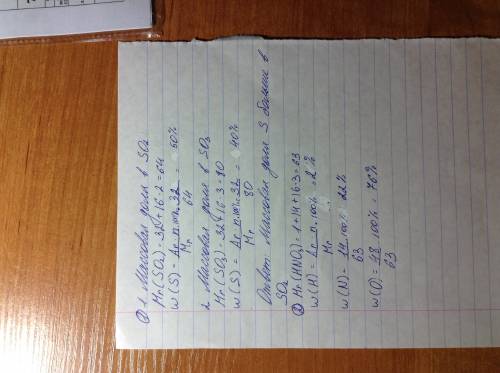 ① 1. Массовая доля в SO₂
Mr(SO₂)=32+16·2=64
w(S)= Ar·n·100·32 / Mr 64 = 50%
2. Массовая доля в SO₃
Mr(SO₃)=32+16·3=80
w(S)= Ar·n·100·32 / Mr 80 = 40%
Ответ: Массовая доля S больше в
SO₂
② Mr(HNO₃)=1+14+16·3=63
w(H)= Ar·n·100% / Mr = 2%
w(N)= 14·100% / 63 = 22%
w(O)= 48·100% / 63 = 76%